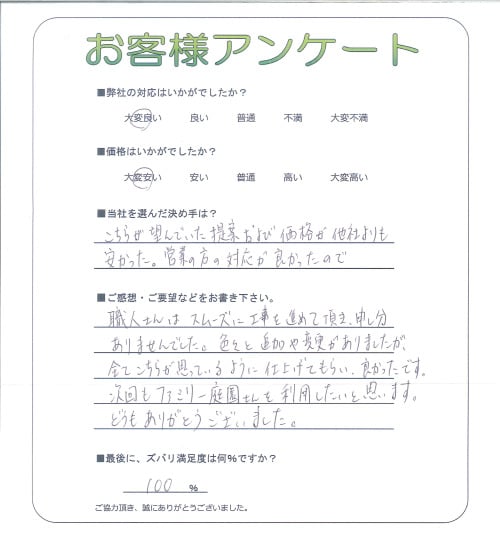 お客様アンケート
■弊社の対応はいかがでしたか？
大変良い 良い 普通 不満 大変不満
■価格はいかがでしたか？
大変安い 安い 普通 高い 大変高い
■当社を選んだ決め手は？
こちらが望んでいた提案および価格が他社よりも
安かった。営業の方の対応が良かったので
■ご感想・ご要望などをお書き下さい。
職人さんはスムーズに工事を進めて頂き、申し分
ありませんでした。色々と追加や変更がありましたが、
全てこちらが思っているように仕上げてもらい、良かったです。
次回もファミリー庭園さんを利用したいと思います。
どうもありがとうございました。
■最後に、ズバリ満足度は何%ですか？
100 %
ご協力頂き、誠にありがとうございました。